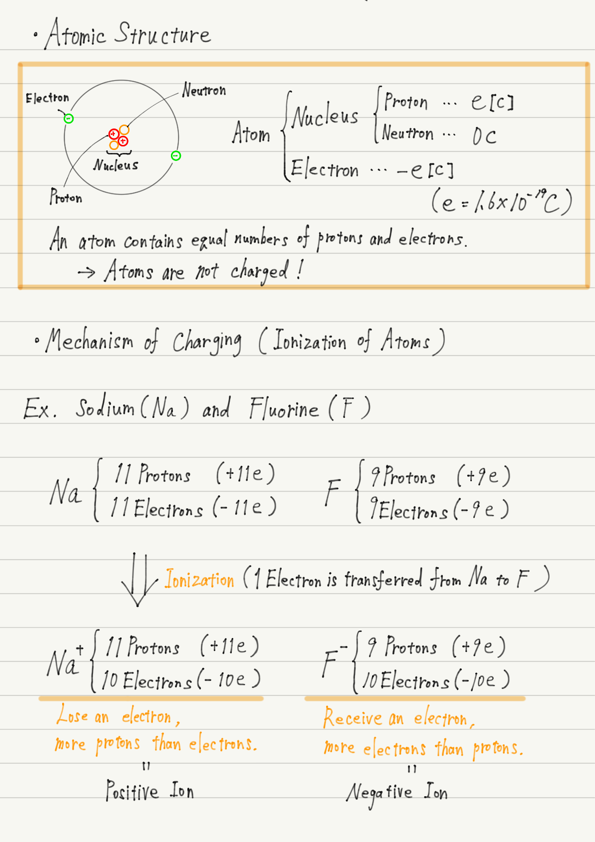 ・Atomic Structure
Electron
Neutron
Nucleus
Proton
Atom { Nucleus { Proton … e [C]
Neutron … 0 C
Electron … -e [C]
(e = 1.6×10⁻¹⁹C)
An atom contains equal numbers of protons and electrons.
→ Atoms are not charged!
・Mechanism of Charging (Ionization of Atoms)
Ex. Sodium (Na) and Fluorine (F)
Na { 11 Protons (+11e)
11 Electrons (-11e)
F { 9 Protons (+9e)
9 Electrons (-9e)
Ionization (1 Electron is transferred from Na to F)
Na⁺ { 11 Protons (+11e)
10 Electrons (-10e)
F⁻ { 9 Protons (+9e)
10 Electrons (-10e)
Lose an electron,
more protons than electrons.
=
Positive Ion
Receive an electron,
more electrons than protons.
=
Negative Ion